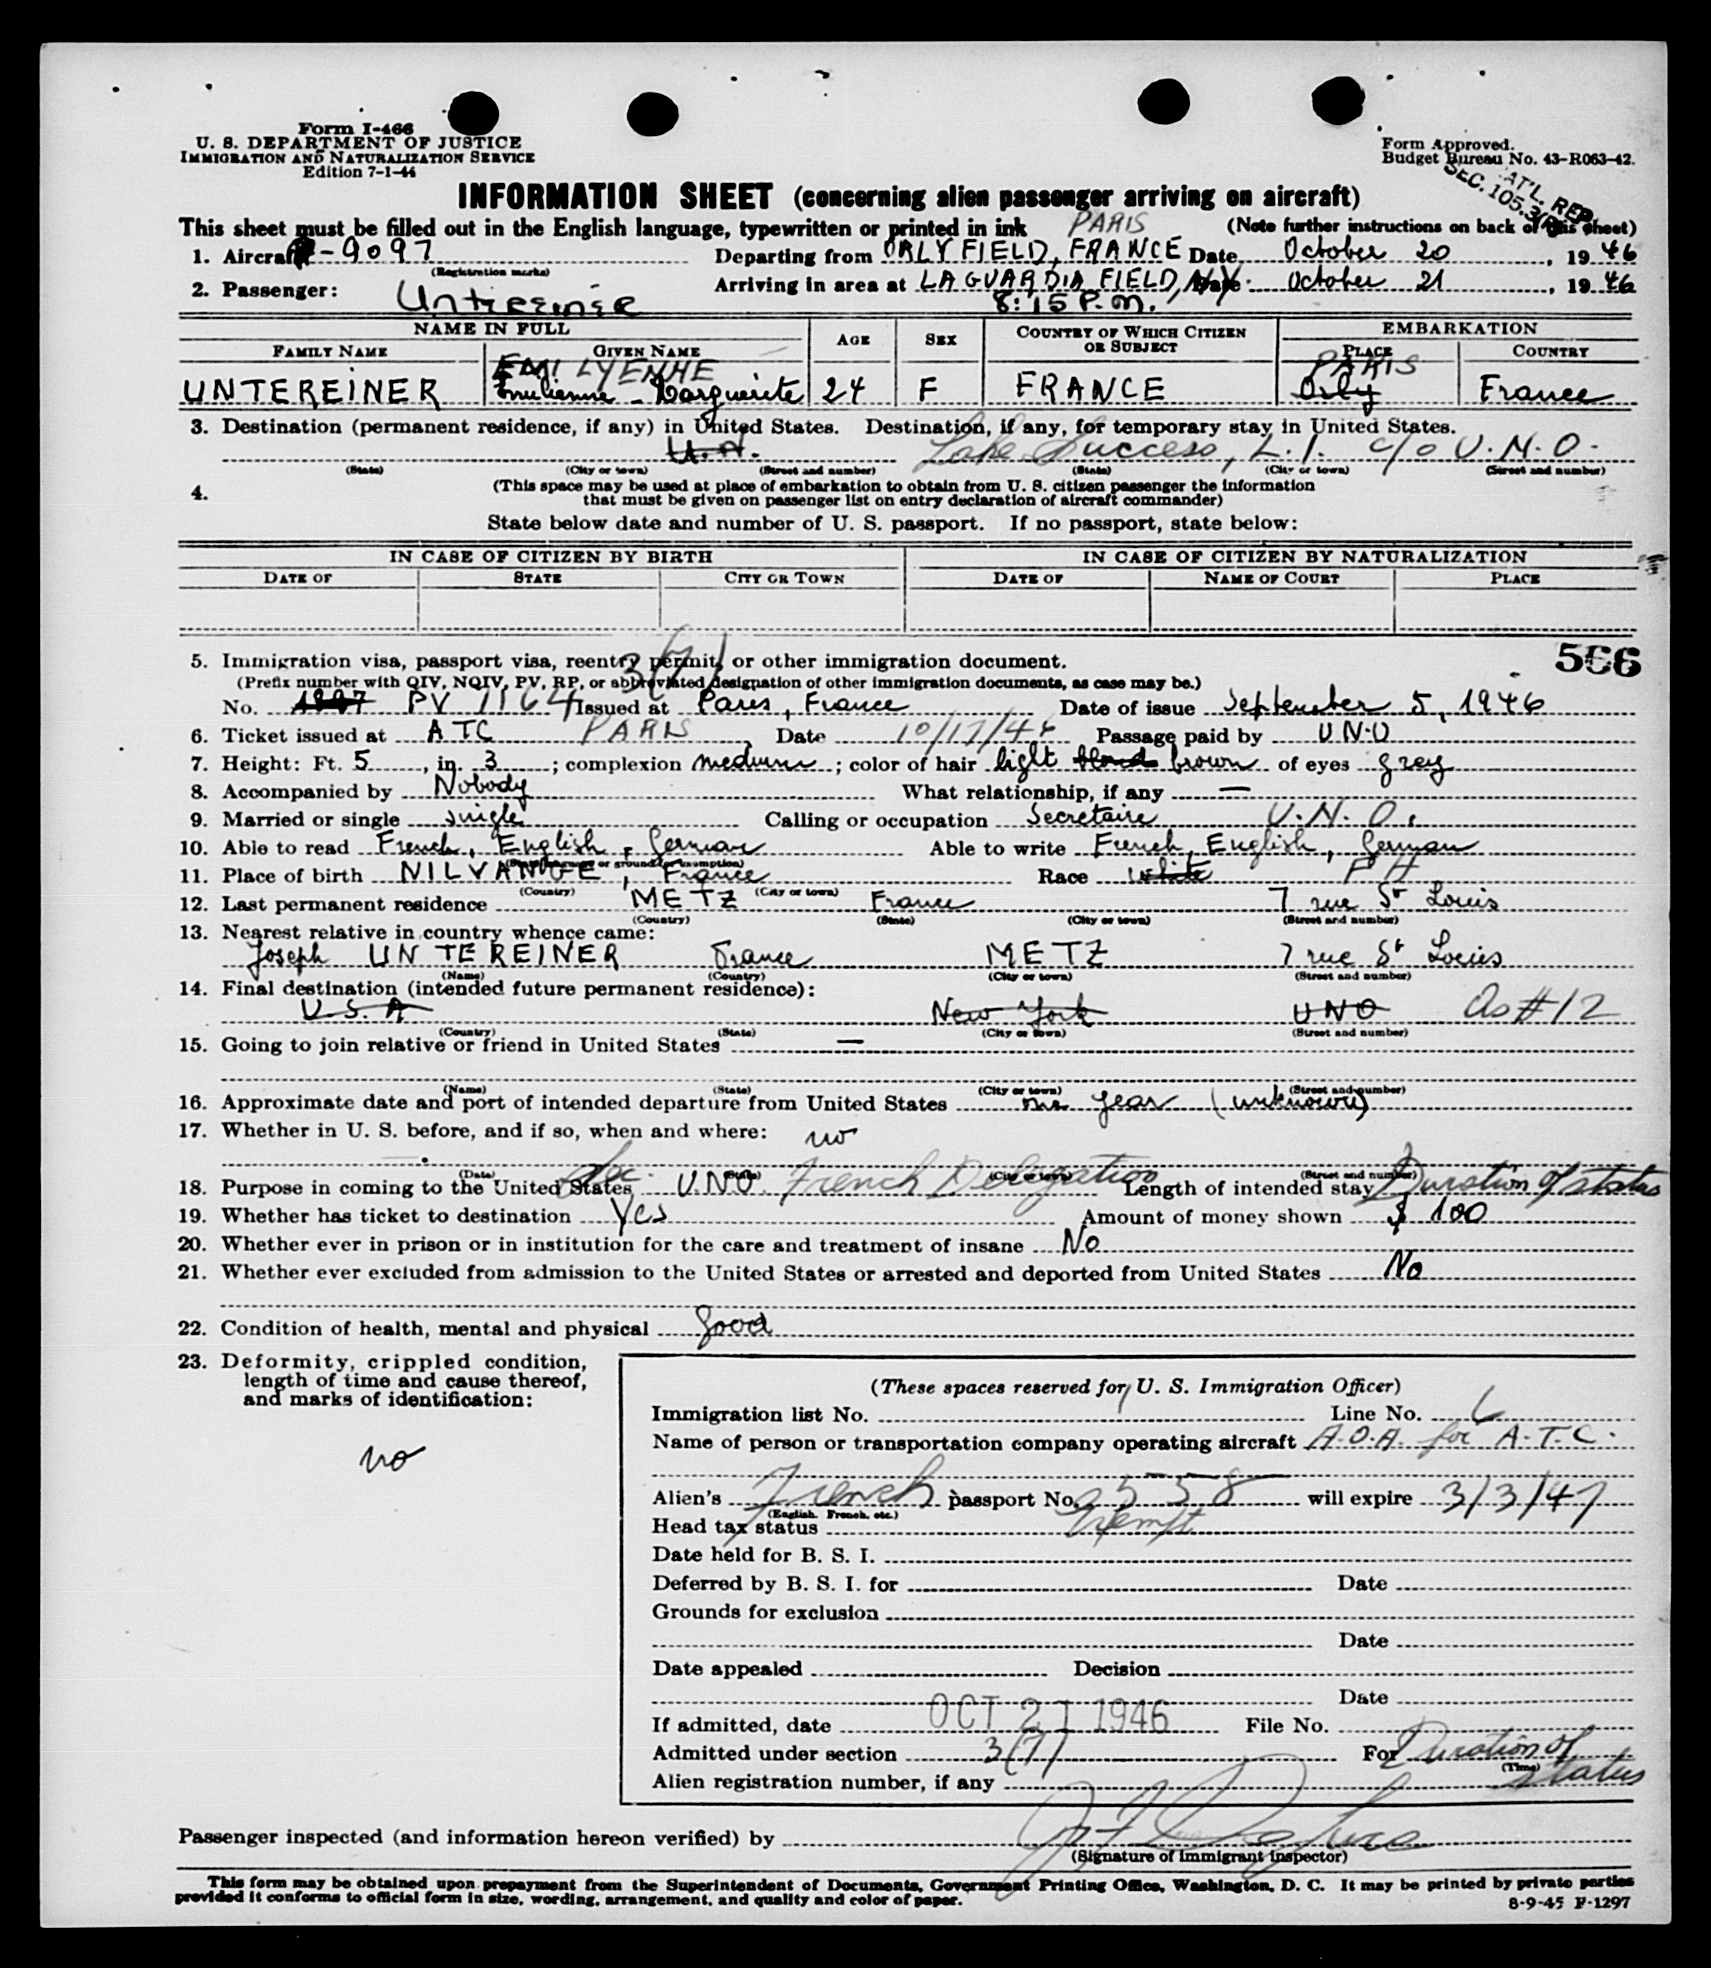 Form I-466
U. S. DEPARTMENT OF JUSTICE
IMMIGRATION AND NATURALIZATION SERVICE
Edition 7-1-44
Form Approved.
Budget Bureau No. 43-R063-42.
NAT'L. REP.
SEC. 105.3
INFORMATION SHEET (concerning alien passenger arriving on aircraft)
This sheet must be filled out in the English language, typewritten or printed in ink PARIS (Note further instructions on back of this sheet)
1. Aircraft -9097 Departing from ORLY FIELD, FRANCE Date October 20, 1946
(Registration marks)
2. Passenger: Untereiner Arriving in area at LAGUARDIA FIELD, N.Y. Date October 21, 1946
8:15 P.M.
NAME IN FULL AGE SEX COUNTRY OF WHICH CITIZEN OR SUBJECT EMBARKATION
FAMILY NAME GIVEN NAME PLACE COUNTRY
EMILYENNE PARIS
UNTEREINER Emilienne - Marguerite 24 F FRANCE Orly France
3. Destination (permanent residence, if any) in United States. Destination, if any, for temporary stay in United States.
U.N. Lake Success, L.I. c/o U.N.O.
(State) (City or town) (Street and number) (State) (City or town) (Street and number)
4. (This space may be used at place of embarkation to obtain from U. S. citizen passenger the information
that must be given on passenger list on entry declaration of aircraft commander)
State below date and number of U. S. passport. If no passport, state below:
IN CASE OF CITIZEN BY BIRTH IN CASE OF CITIZEN BY NATURALIZATION
DATE OF STATE CITY OR TOWN DATE OF NAME OF COURT PLACE
566
5. Immigration visa, passport visa, reentry permit, or other immigration document.
3(7)
(Prefix number with QIV, NQIV, PV, RP, or abbreviated designation of other immigration documents, as case may be.)
No. PV 1164 Issued at Paris, France Date of issue September 5, 1946
6. Ticket issued at ATC PARIS Date 10/17/46 Passage paid by UNO
7. Height: Ft. 5, in. 3; complexion medium; color of hair light blond brown of eyes grey
8. Accompanied by Nobody What relationship, if any —
9. Married or single single Calling or occupation Secretaire U.N.O.
10. Able to read French, English, German Able to write French, English, German
(State language or ground for exemption)
11. Place of birth NILVANGE, France Race white FH
(Country) (City or town)
12. Last permanent residence METZ France 7 rue St Louis
(Country) (State) (City or town) (Street and number)
13. Nearest relative in country whence came:
Joseph UNTEREINER France METZ 7 rue St Louis
(Name) (Country) (City or town) (Street and number)
14. Final destination (intended future permanent residence):
U.S.A New York UNO As #12
(Country) (State) (City or town) (Street and number)
15. Going to join relative or friend in United States —
(Name) (State) (City or town) (Street and number)
16. Approximate date and port of intended departure from United States one year (unknown)
17. Whether in U. S. before, and if so, when and where: no
(Date) (State) (City or town) (Street and number)
18. Purpose in coming to the United States Sec. UNO French Delegation Length of intended stay Duration of status
19. Whether has ticket to destination Yes Amount of money shown $ 100
20. Whether ever in prison or in institution for the care and treatment of insane No
21. Whether ever excluded from admission to the United States or arrested and deported from United States No
22. Condition of health, mental and physical good
23. Deformity, crippled condition,
length of time and cause thereof,
and marks of identification:
no
(These spaces reserved for U. S. Immigration Officer)
Immigration list No. 1 Line No. 6
Name of person or transportation company operating aircraft A.O.A. for A.T.C.
Alien's French passport No. 5558 will expire 3/3/47
(English, French, etc.)
Head tax status Exempt
Date held for B. S. I.
Deferred by B. S. I. for Date
Grounds for exclusion
Date
Date appealed Decision
Date
If admitted, date OCT 21 1946 File No.
Admitted under section 3(7) For Duration of status
(Time)
Alien registration number, if any
Passenger inspected (and information hereon verified) by
(Signature of immigrant inspector)
This form may be obtained upon prepayment from the Superintendent of Documents, Government Printing Office, Washington, D. C. It may be printed by private parties
provided it conforms to official form in size, wording, arrangement, and quality and color of paper.
8-9-45 F-1297